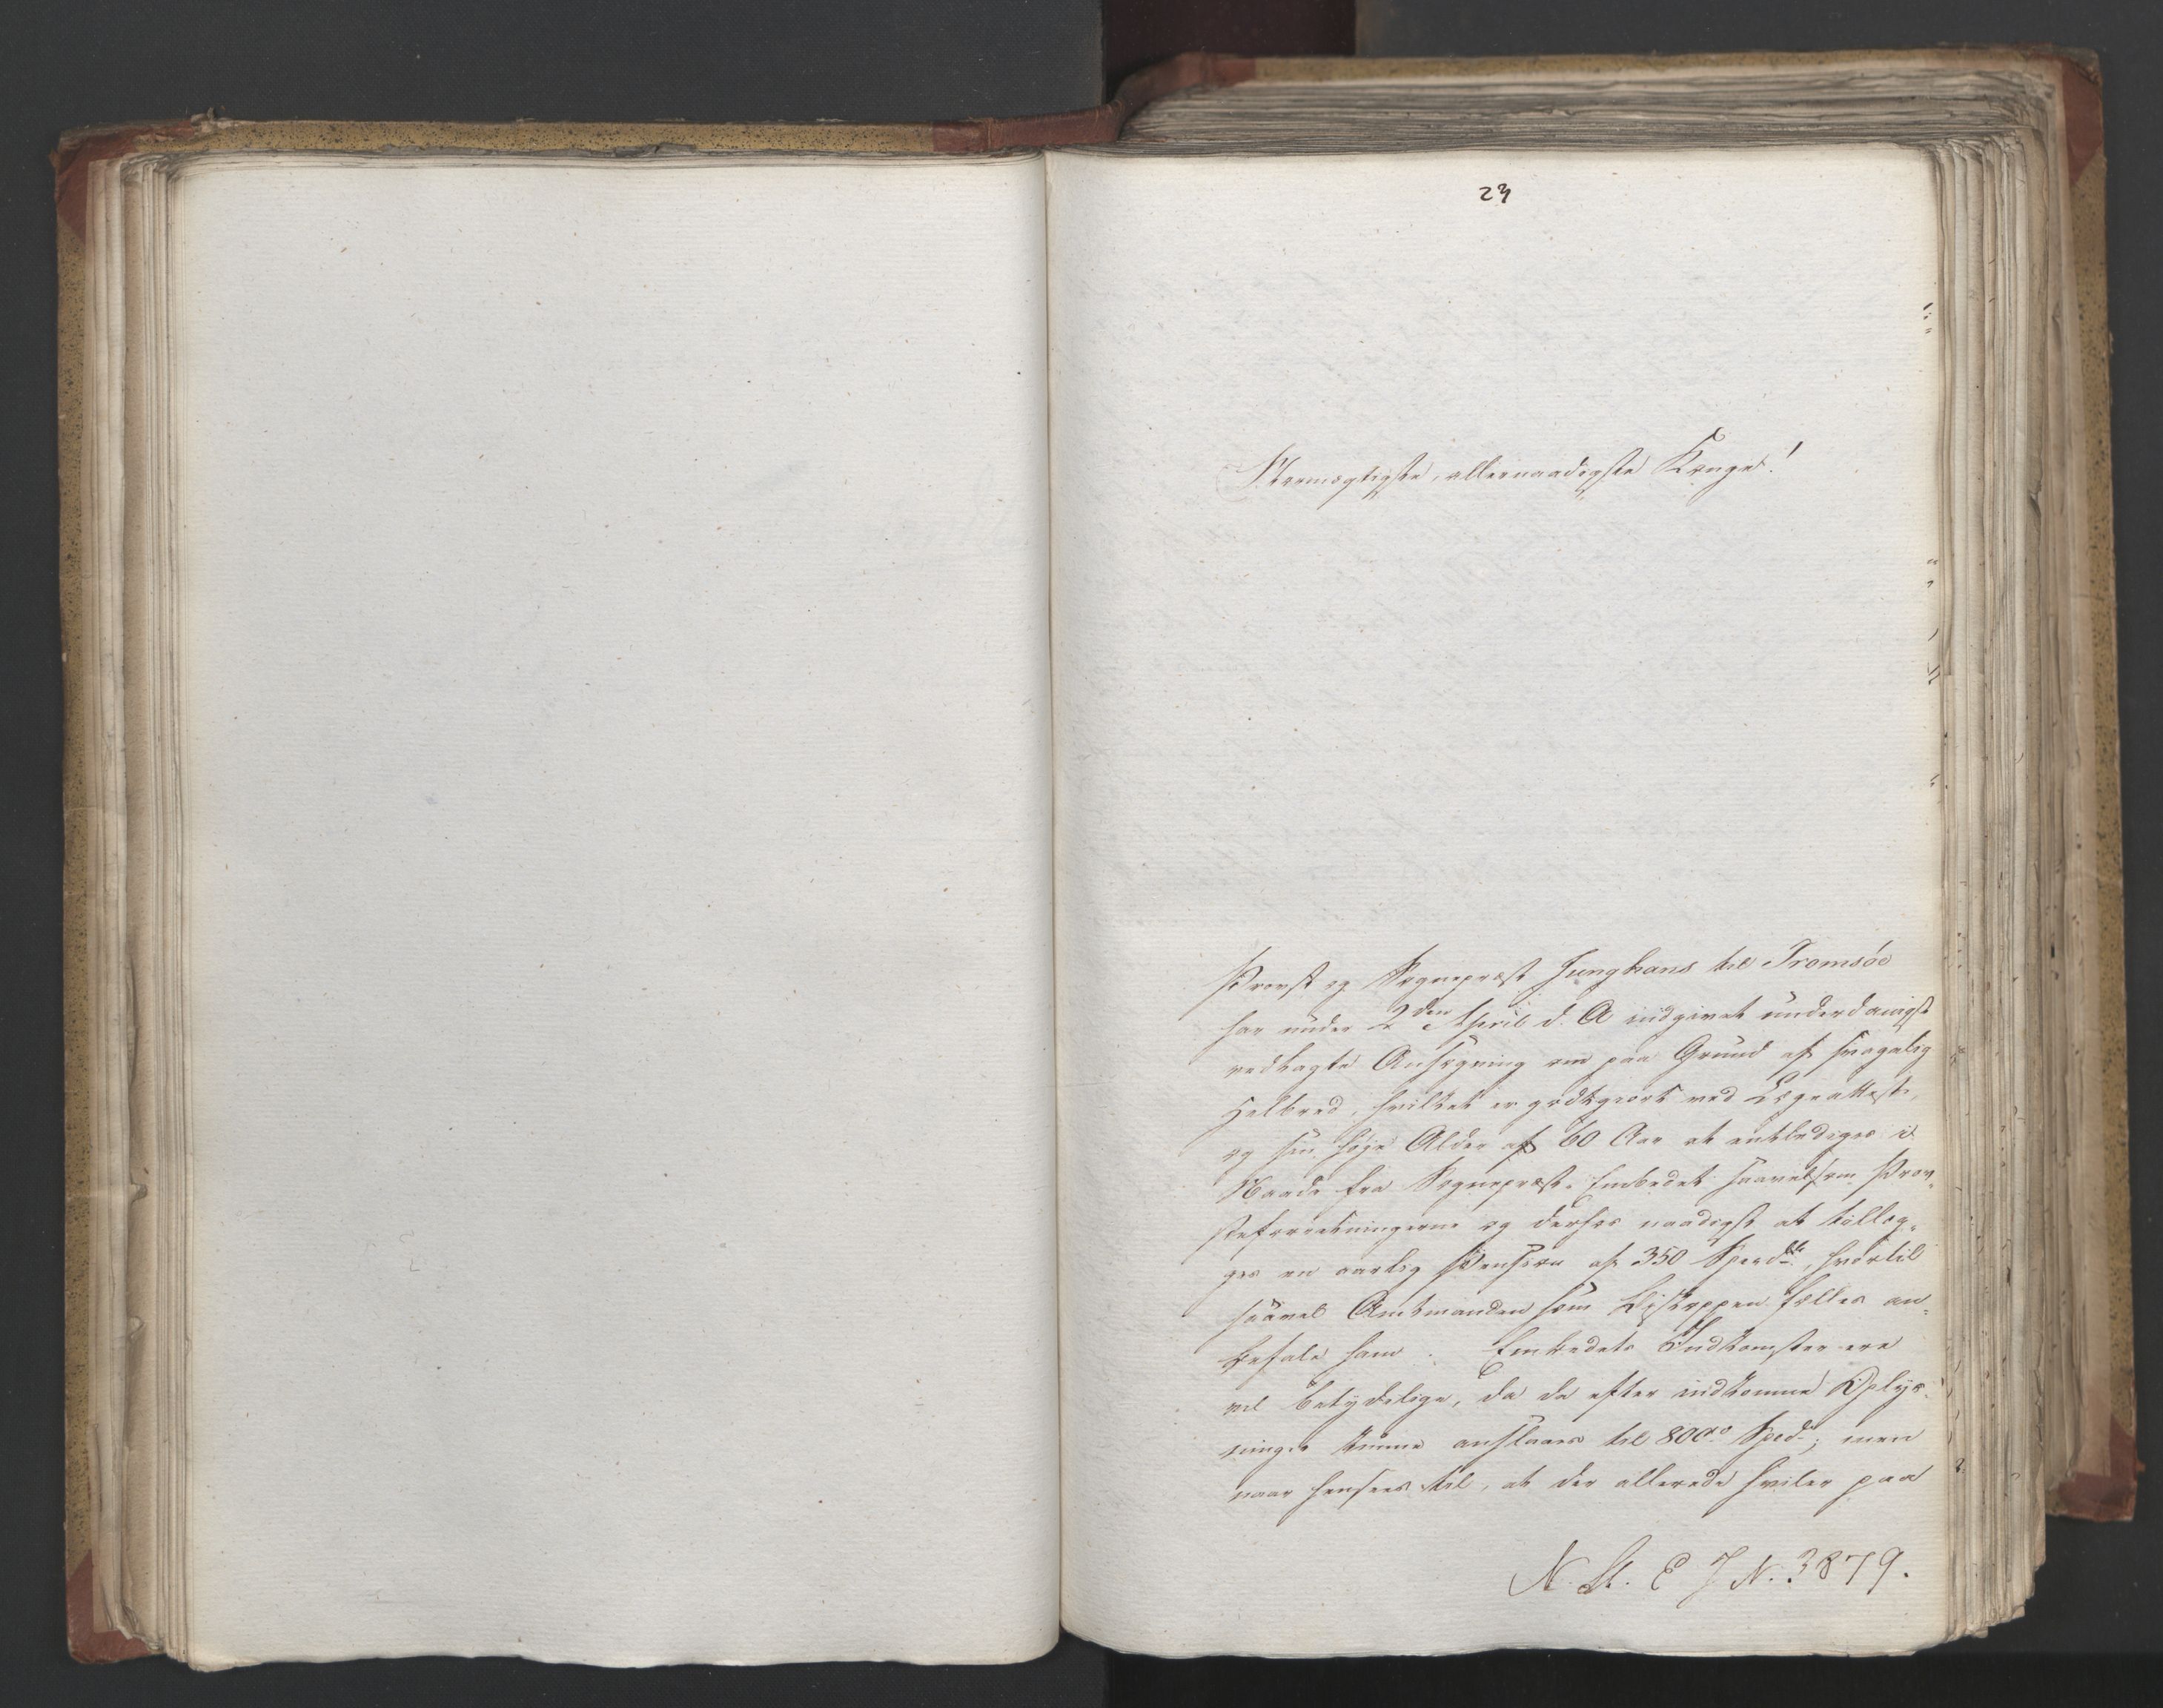 23
Stormægtigste, allernaadigste Konge!
Provst og Sognepræst Junghans til Tromsöe
har under 2den April d. A indgivet underdanigst
vedlagte Ansøgning om paa Grund af svagelig
Helbred, hvilket er godtgiort ved Lægeattest,
og sin høje Alder af 60 Aar at entlediges i
Naade fra Sognepræst-Embedet saavelsom Prov-
steforretningerne og derhos naadigst at tillæg-
ges en aarlig Pension af 350 Spdlr, hvortil
saavel Amtmanden som Biskoppen fælles an-
befale ham. Embedets Indkomster ere
vel betydelige, da de efter indkomne Oplys-
ninger kunne anslaaes til 800 Spd.; men
naar hensees til, at der allerede hviler paa
N. St. E J N. 3879.